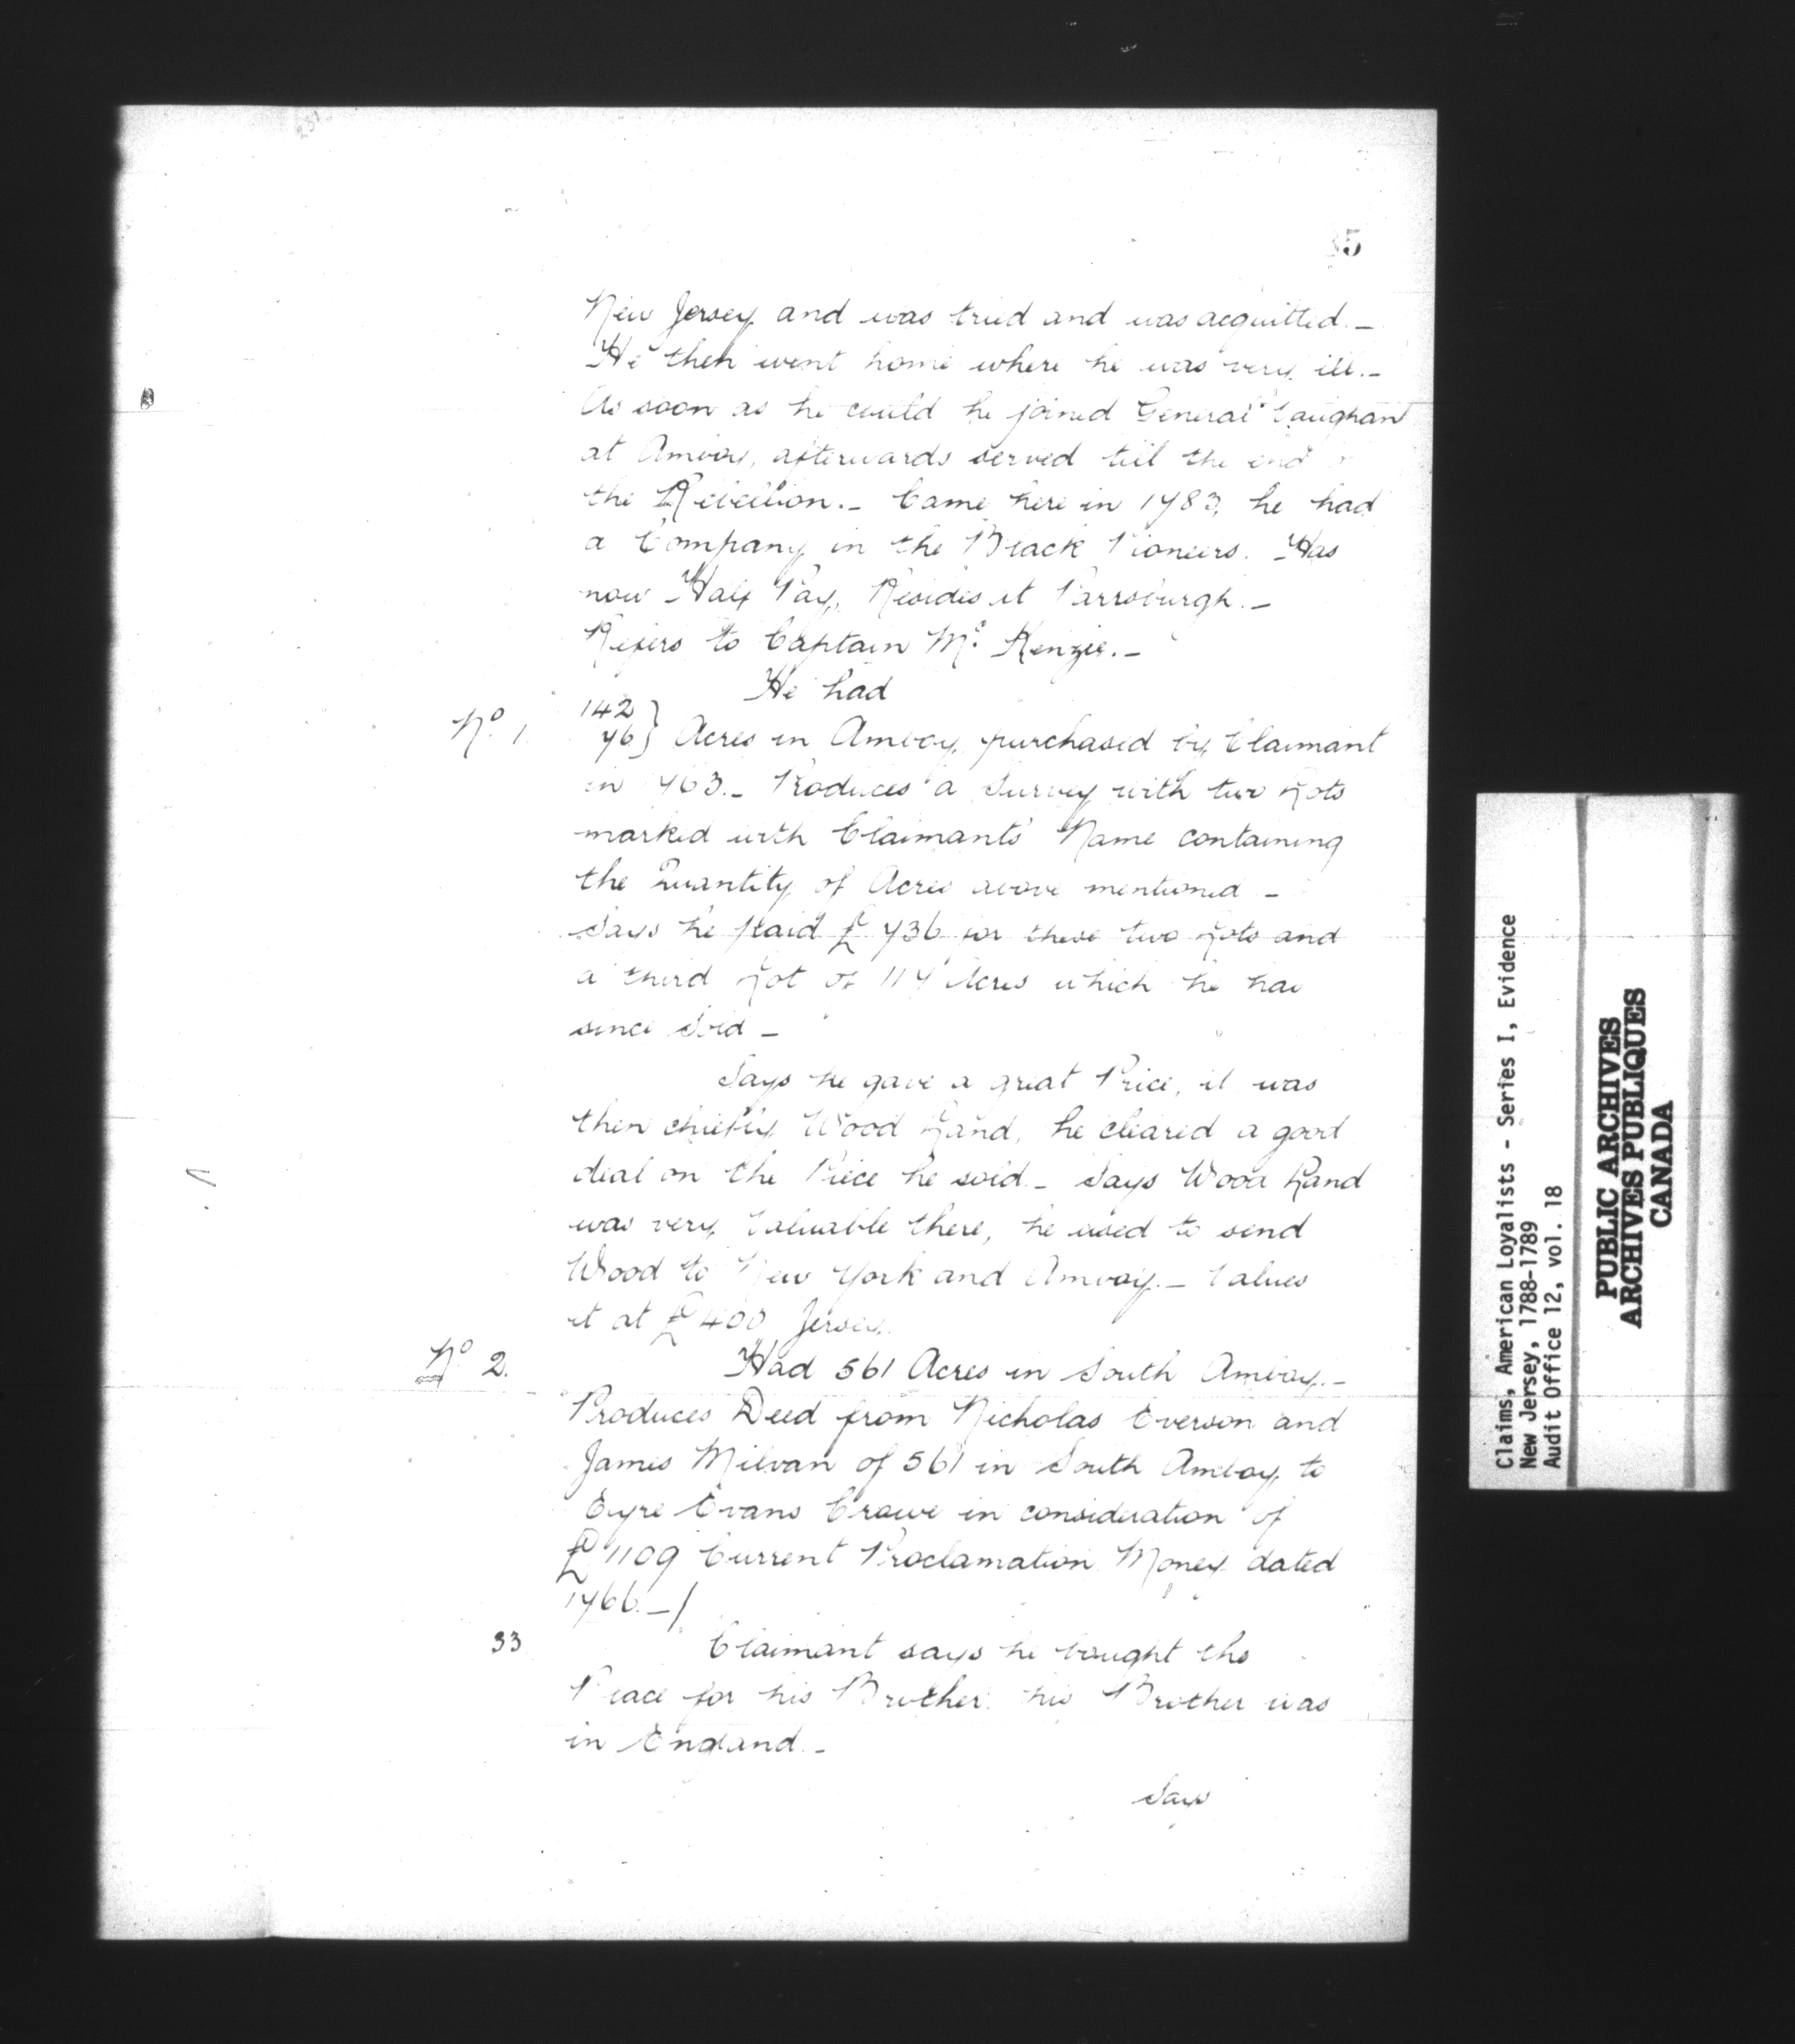 35
New Jersey and was tried and was acquitted. _
He then went home where he was very ill. _
As soon as he could he joined General Vaughan
at Amboy, afterwards served till the end
the Rebellion. _ Came here in 1783, he had
a Company in the Black Pioneers. Has
now Half Pay, Resides at Parrsburgh. _
Refers to Captain Mc Kenzie. _
He had
No. 1.
142 }
76 } Acres in Amboy, purchased by Claimant
in 1763. _ Produces a Survey with two Lots
marked with Claimants' Name containing
the Quantity of Acres above mentioned _
Says he paid £ 736 for these two Lots and
a third Lot of 117 Acres which he has
since Sold _
Says he gave a great Price, it was
then chiefly Wood Land, he cleared a good
deal on the Piece he sold. _ Says Wood Land
was very Valuable there, he used to send
Wood to New York and Amboy. _ Values
it at £ 400 Jersey.
No 2.
Had 561 Acres in South Amboy. _
Produces Deed from Nicholas Everson and
James Milvan of 561 in South Amboy, to
Eyre Evans Crowe in consideration of
£ 1109 Current Proclamation Money dated
1766. _/
33
Claimant says he bought the
Place for his Brother. his Brother was
in England. _
Says
Claims, American Loyalists - Series I, Evidence
New Jersey, 1788-1789
Audit Office 12, vol. 18
PUBLIC ARCHIVES
ARCHIVES PUBLIQUES
CANADA